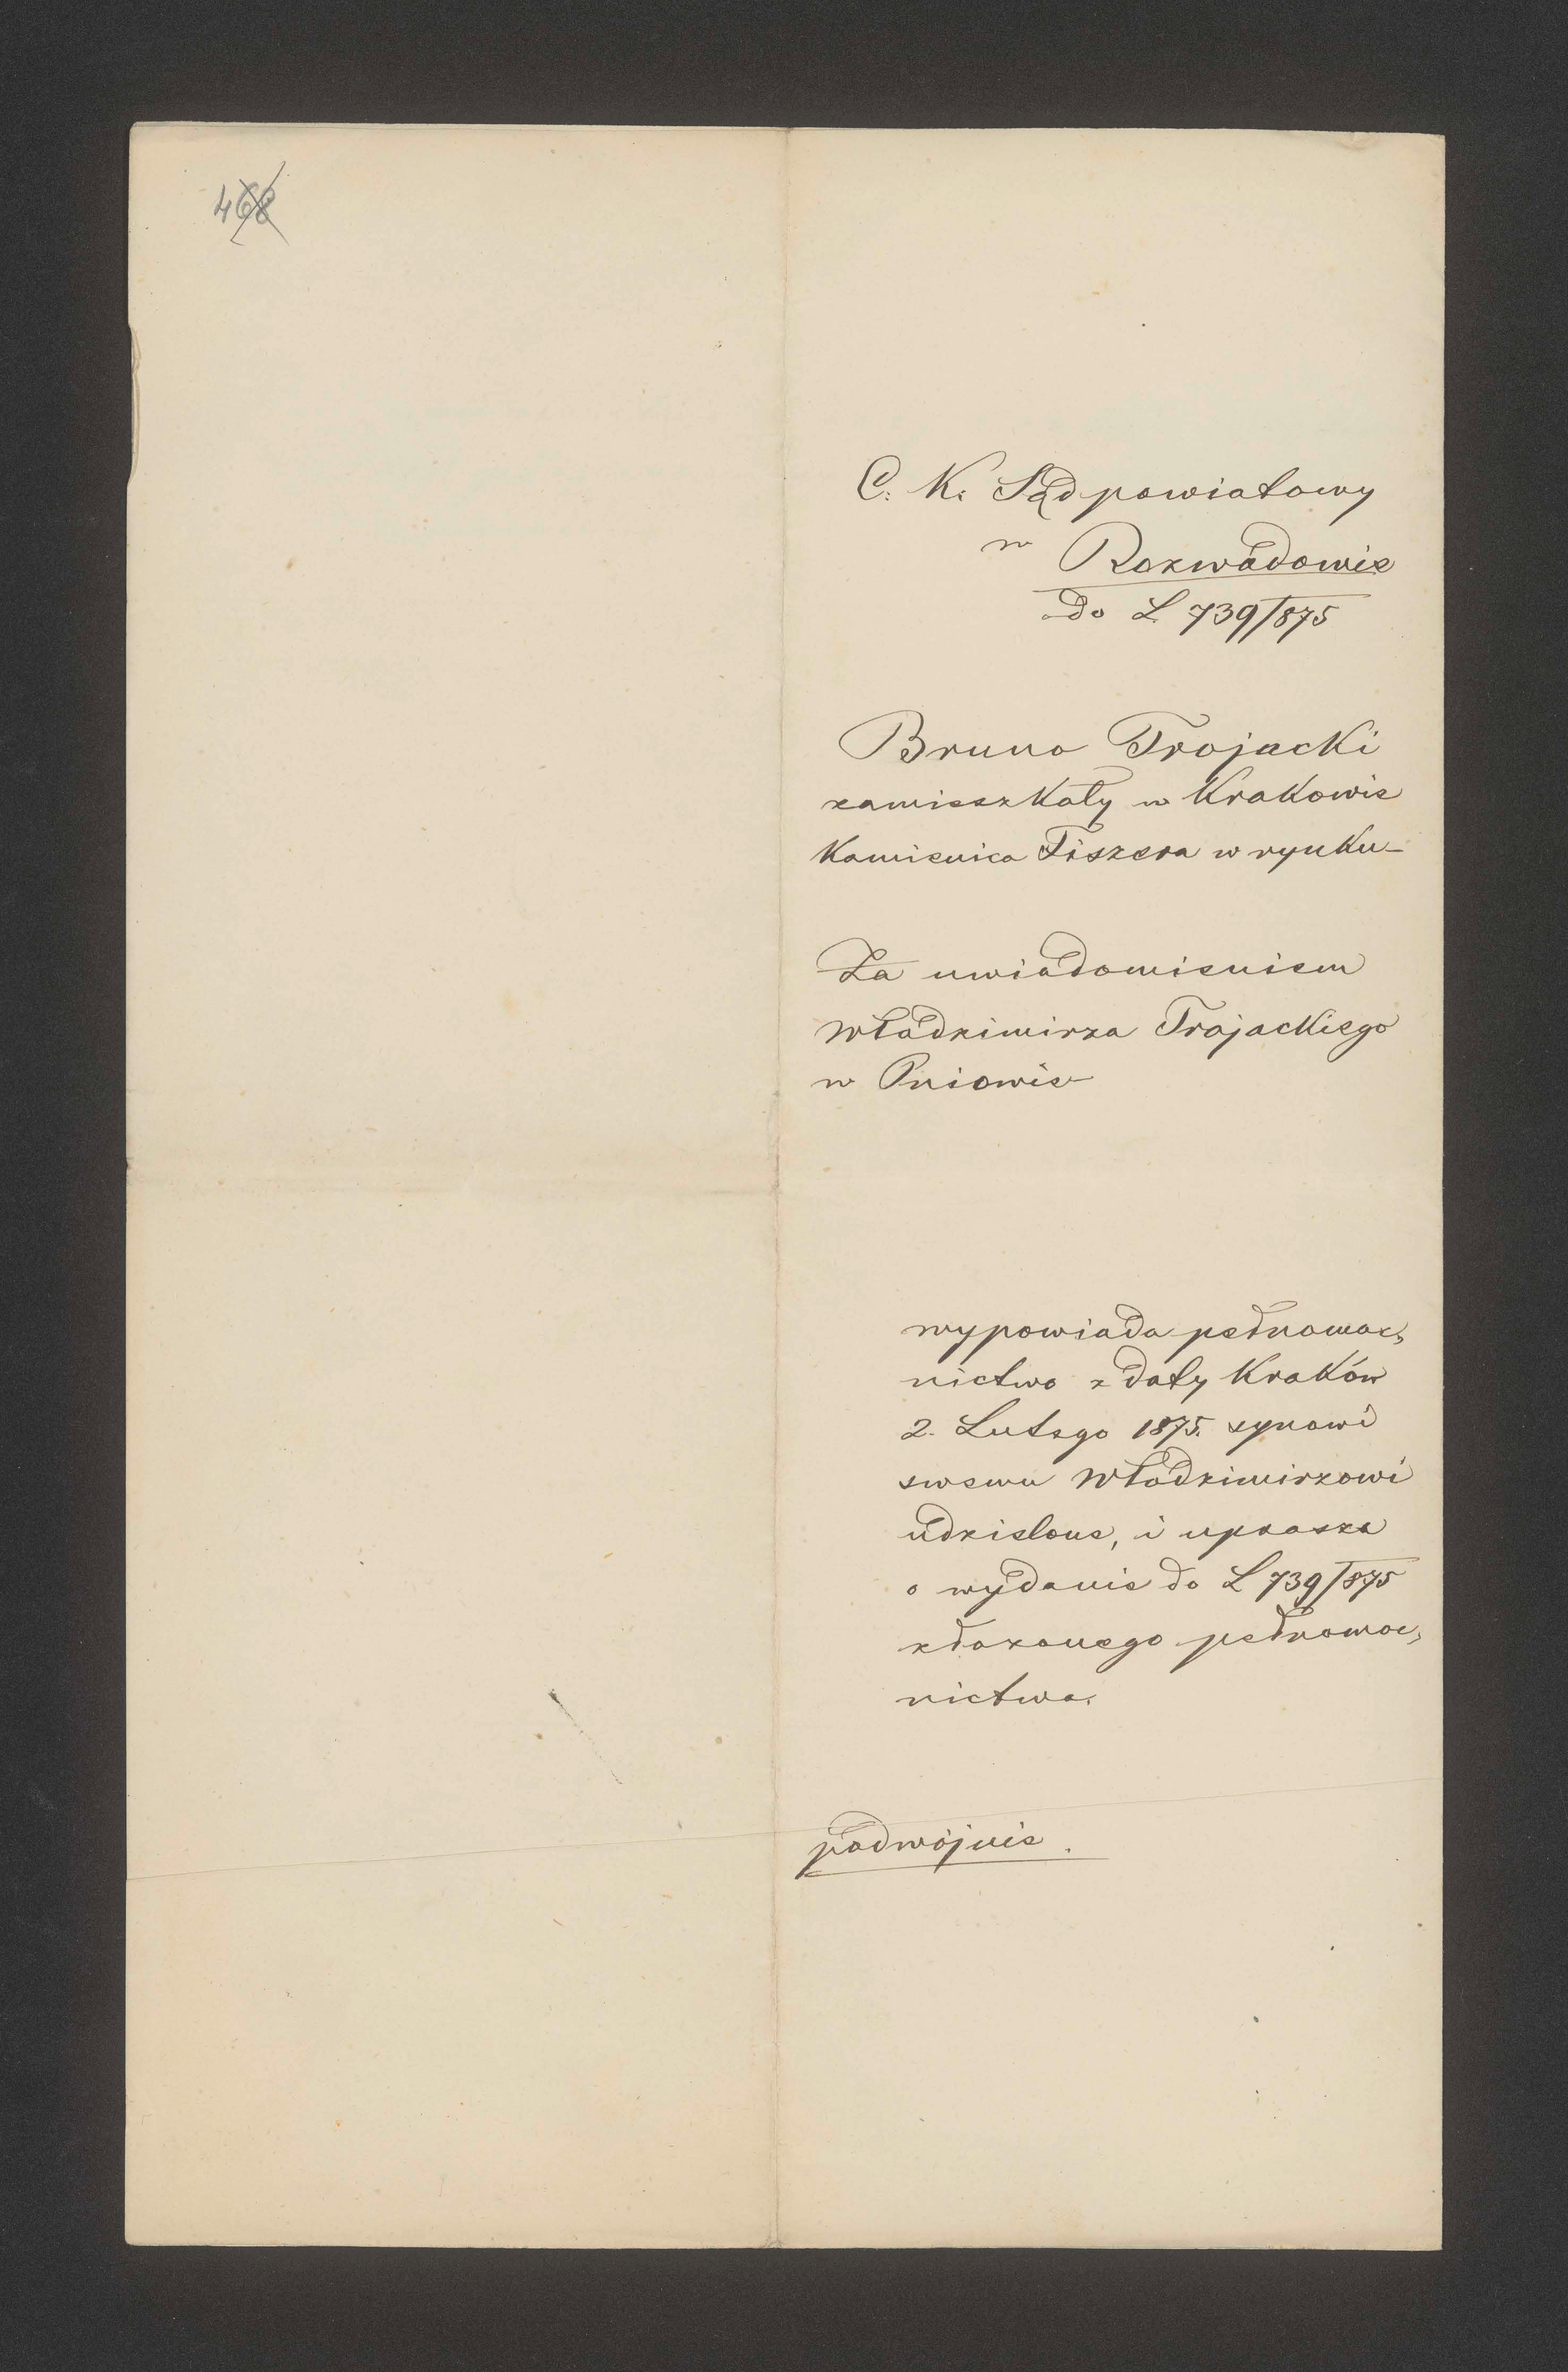 468
C. K. Sąd powiatowy
w Rozwadowie
do L 739/875
Bruno Trojacki
zamieszkały w Krakowie
Kamienica Fiszera w rynku
Za uwiadomieniem
Włodzimirza Trojackiego
w Pniowie
wypowiada pełnomoc,
nictwo z daty Kraków
2. Lutego 1875. synowi
swemu Włodzimirzowi
udzielone, i uprasza
o wydanie do L 739/875
złożonego pełnomoc,
nictwa.
podwójnie.